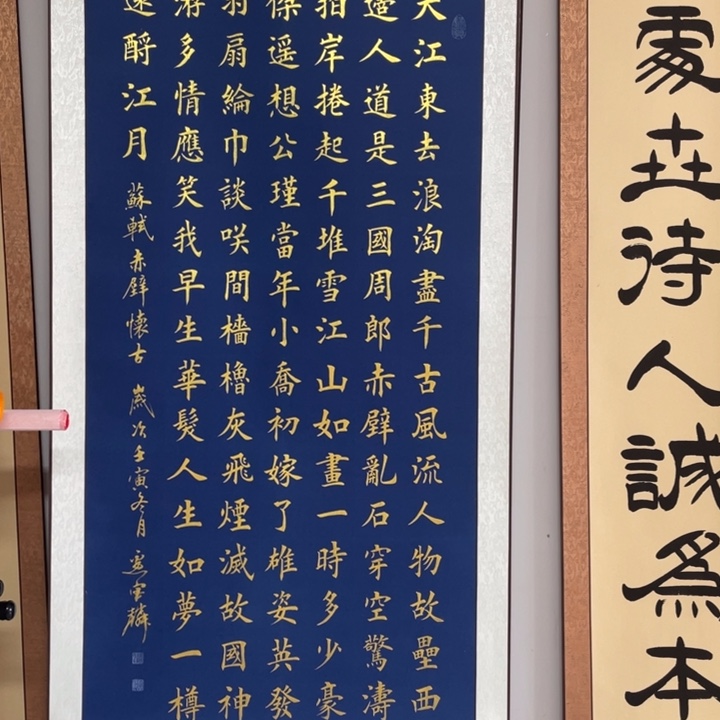 處世待人誠爲本
大江東去浪淘盡千古風流人物故壘西
邊人道是三國周郎赤壁亂石穿空驚濤
拍岸捲起千堆雪江山如畫一時多少豪
傑遥想公瑾當年小喬初嫁了雄姿英發
羽扇綸巾談咲間檣櫓灰飛煙滅故國神
游多情應笑我早生華髮人生如夢一樽
還酹江月
蘇軾赤壁懷古 歲次壬寅冬月